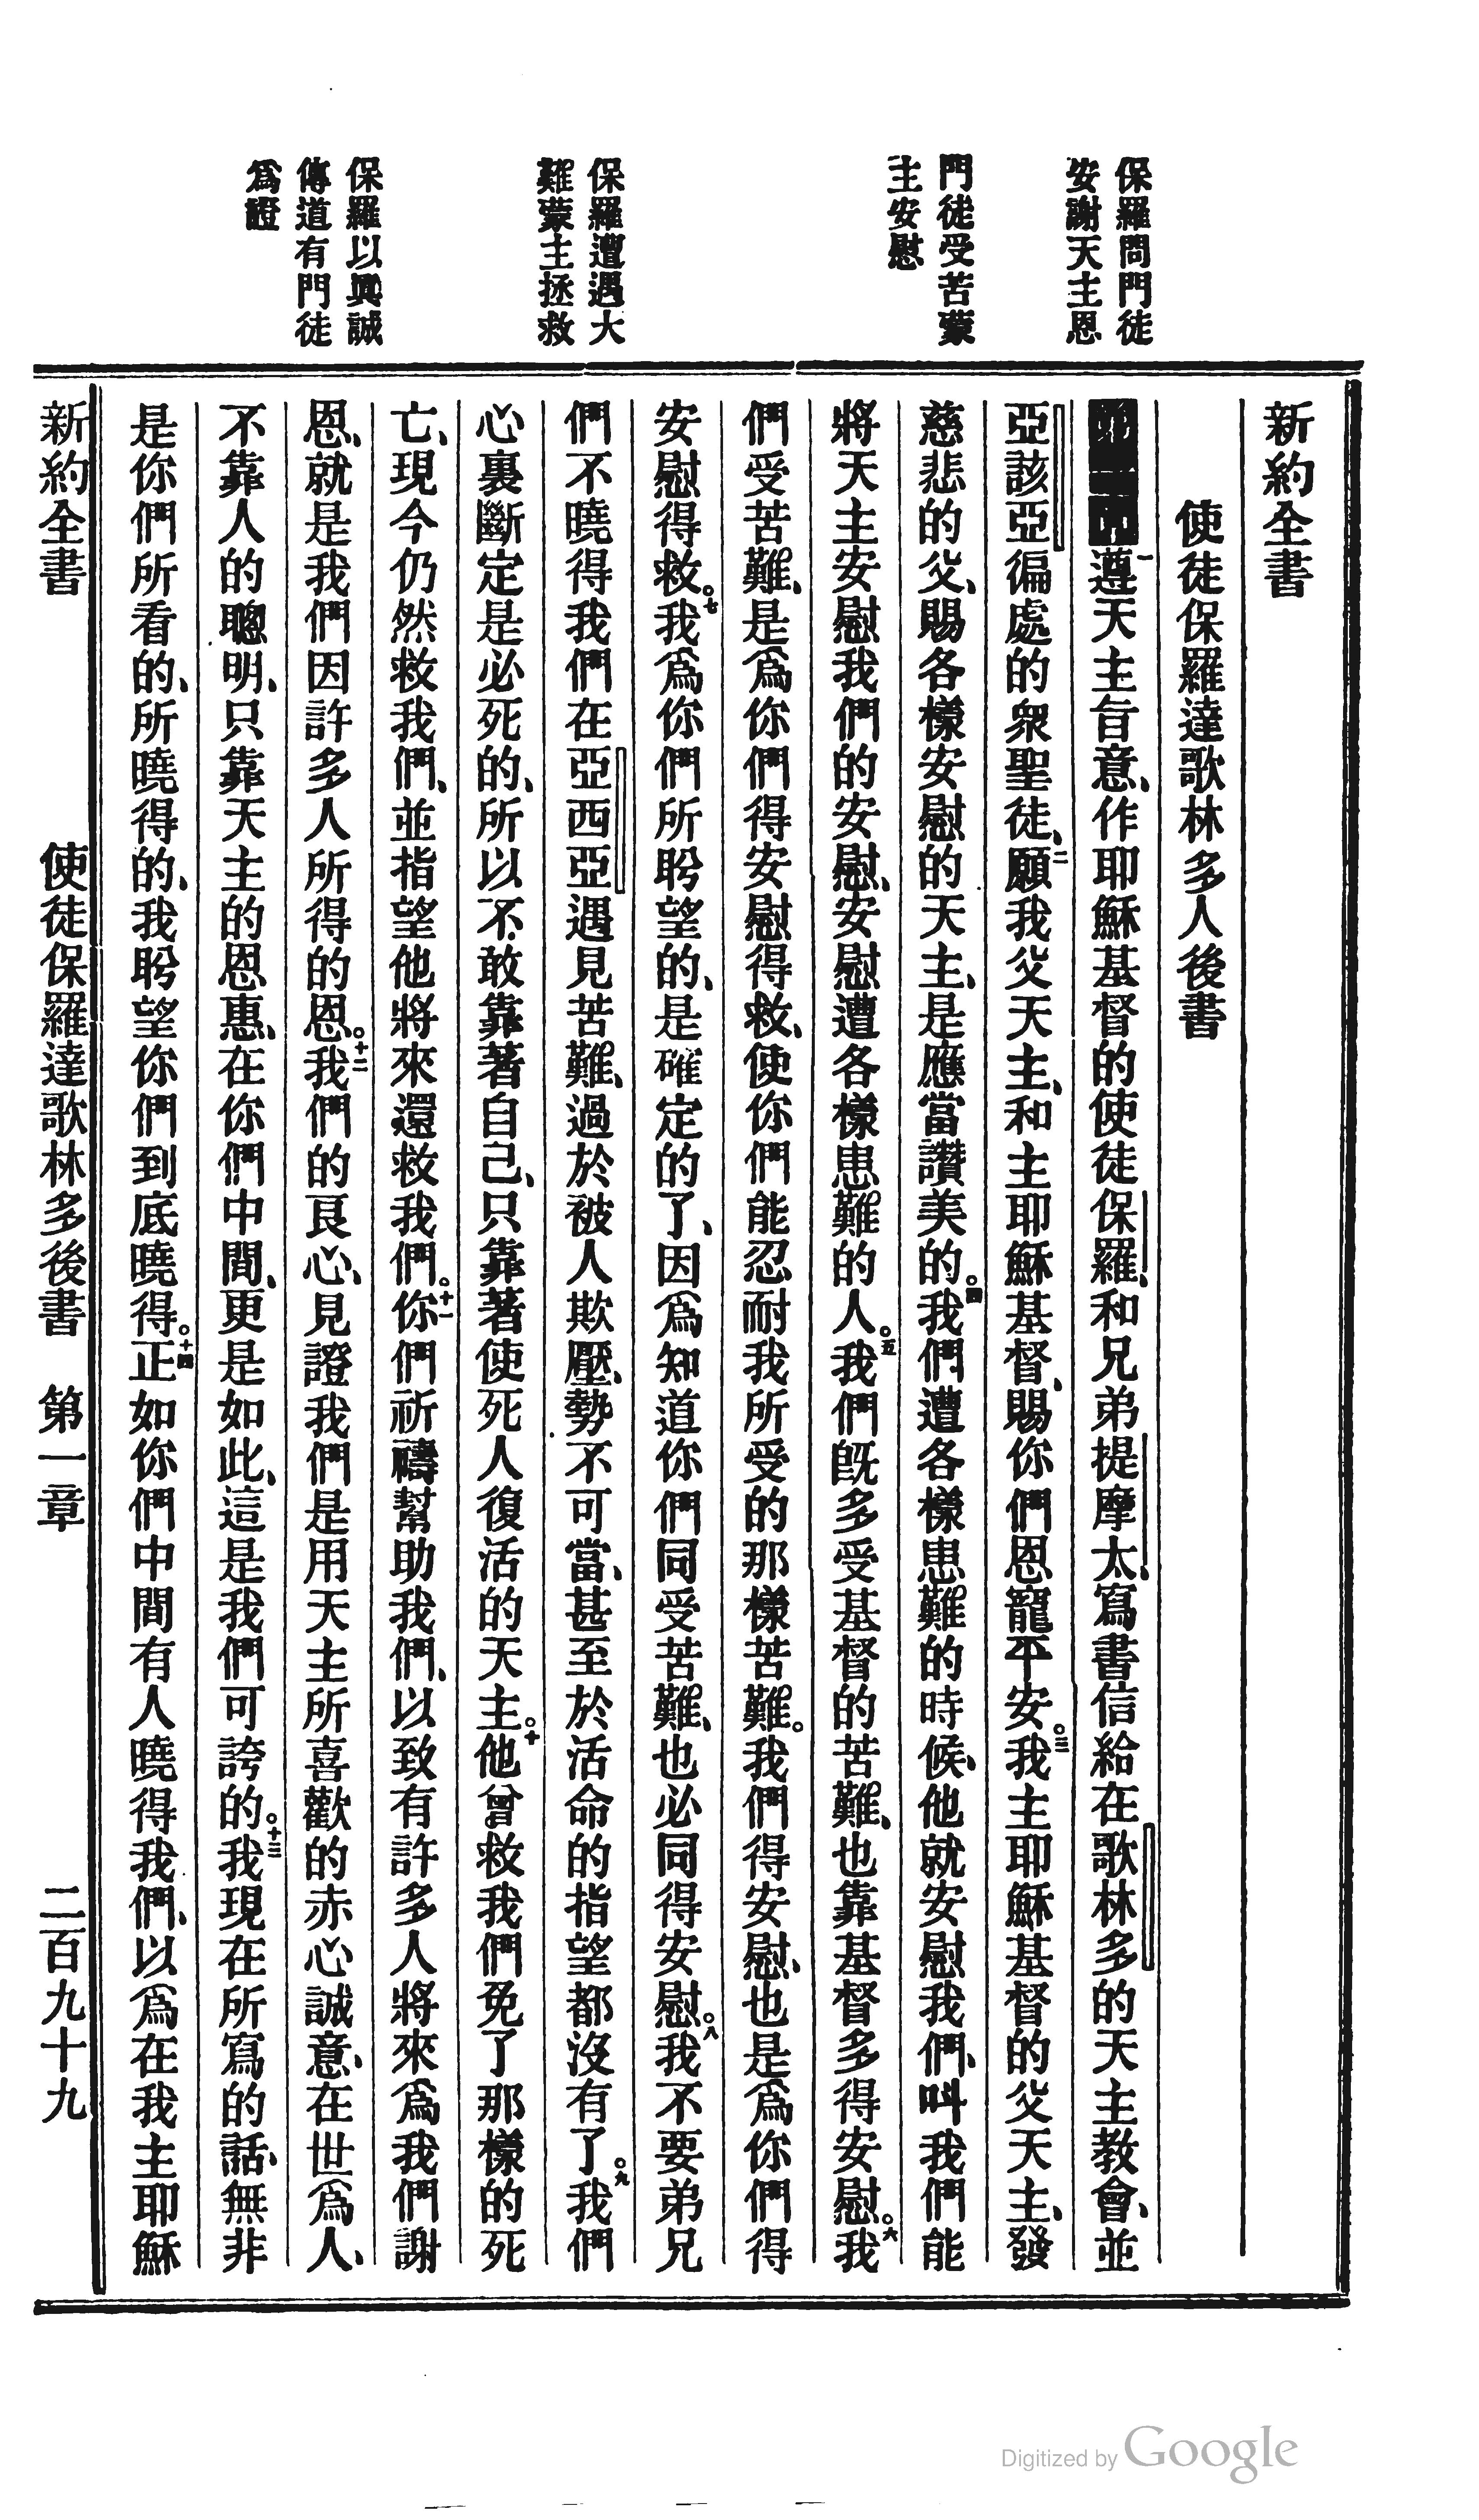 保羅問門徒
安謝天主恩
門徒受苦蒙
主安慰
保羅遭遇大
難蒙主拯救
保羅以眞誠
傳道有門徒
爲證
新約全書
使徒保羅達歌林多人後書
一遵天主旨意、作耶穌基督的使徒保羅、和兄弟提摩太、寫書信給在歌林多的天主教會、並
亞該亞徧處的衆聖徒、二願我父天主、和主耶穌基督、賜你們恩寵平安。三我主耶穌基督的父天主、發
慈悲的父、賜各樣安慰的天主、是應當讚美的。四我們遭各樣患難的時候、他就安慰我們、叫我們能
將天主安慰我們的安慰、安慰遭各樣患難的人。五我們旣多受基督的苦難、也靠基督多得安慰。六我
們受苦難、是爲你們得安慰得救、使你們能忍耐我所受的那樣苦難。我們得安慰、也是爲你們得
安慰得救。七我爲你們所盼望的、是確定的了、因爲知道你們同受苦難、也必同得安慰。八我不要弟兄
們不曉得我們在亞西亞遇見苦難、過於被人欺壓、勢不可當、甚至於活命的指望都沒有了。九我們
心裏斷定是必死的、所以不敢靠著自己、只靠著使死人復活的天主。十他曾救我們免了那樣的死
亡、現今仍然救我們、並指望他將來還救我們。十一你們祈禱幫助我們、以致有許多人將來爲我們謝
恩、就是我們因許多人所得的恩。十二我們的良心、見證我們是用天主所喜歡的赤心誠意、在世爲人、
不靠人的聰明、只靠天主的恩惠、在你們中間、更是如此、這是我們可誇的。十三我現在所寫的話、無非
是你們所看的、所曉得的、我盼望你們到底曉得。十四正如你們中間有人曉得我們、以爲在我主耶穌
新約全書 使徒保羅達歌林多後書 第一章 二百九十九
Digitized by Google